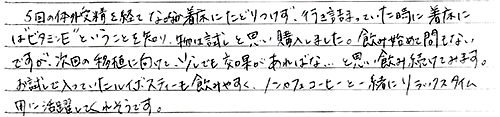 5回の体外受精を経てなお着床にたどりつけず、行き詰まっていた時に着床に
は"ビタミンE"ということを知り、物は試しと思い購入しました。飲み始めて間もない
ですが、次回の移植に向けて、少しでも効果があればな…と思い飲み続けてみます。
お試しで入っていたルイボスティーも飲みやすく、ノンカフェコーヒーと一緒にリラックスタイム
用に活躍してくれそうです。